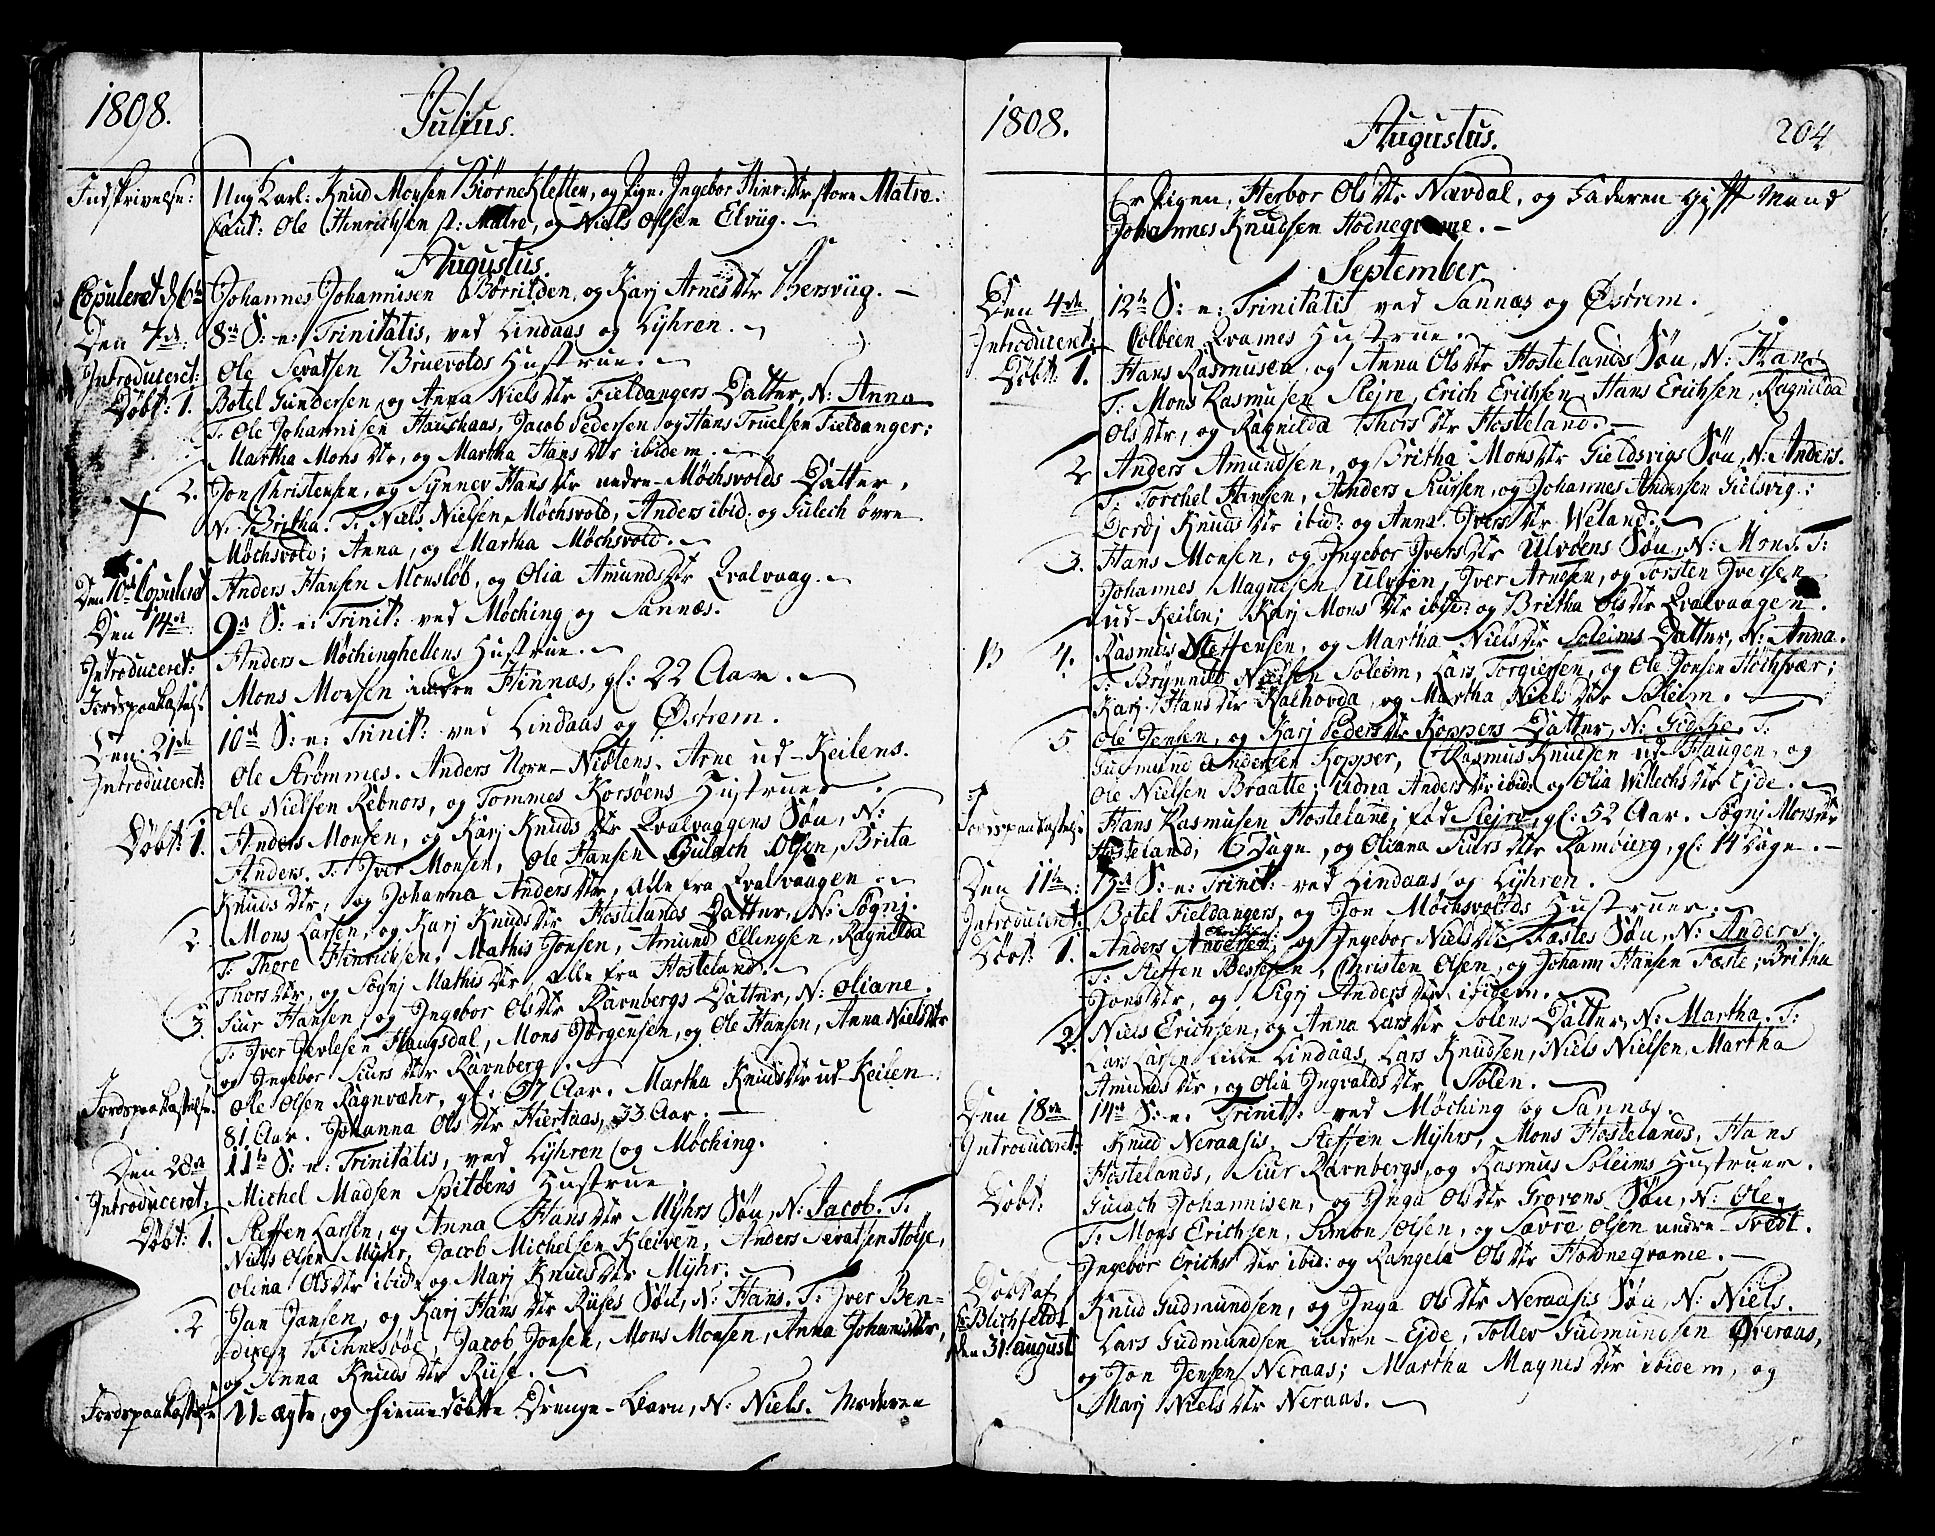 1808. Julius.
Indskrivelse: Ung Karl: Knud Monsen BiørneKletten, og Pige: Ingebor Hinr: Dtr store Matre:
Caut: Ole Hinrichsen st: Matre, og Niels Olsen Elvüg.
Augustus.
Copuleret d 6te Johannes Johannisen Børrilden, og Karj Arnes Dtr Hersvüg.
Den 7de: 8de S: e: Trinitatis, ved Lindaas og Lyhren.
Introduceret: Ole Sevatsen Bruevolds Hustrue.
Døbt: 1. Botel Gundersen, og Anna Niels Dtr Fieldangers Datter, N: Anna
T: Ole Johannisen Haukaas, Jacob Pedersen og Hans Truelsen Fieldanger;
Martha Mons Dtr, og Martha Hans Dtr ibidem.
2. Jon Christensen, og Synnev Hans Dtr nedre Møchsvolds Datter,
N: Britha. T: Niels Nielsen Møchsvold, Anders ibid: og Gulech øvre
Møchsvold; Anna, og Martha Møchsvold.
Den 10de Copuleret Anders Hansen Monsløb, og Olia Amunds Dtr Qvalvaag.
Den 14de: 9de S: e: Trinit: ved Møching og Sannæs.
Introduceret: Anders Møchinghellens Hustrue.
Jordspaakastelse: Mons Monsen indre Hinnæs, gl: 22 Aar.
Den 21de 10de S: e: Trinit: ved Lindaas og Østrem.
Introduceret: Ole Strømmes. Anders Norn-Niøtens. Arne ud-Keilens.
Ole Nielsen Rebnors, og Tommes Korsøens Hustruer.
Døbt: 1. Anders Monsen, og Karj Knuds Dtr Qvalvaagens Søn, N:
Anders. T: Jver Monsen, Ole Hansen Gulach Olsen, Brita
Knuds Dtr, og Johanna Anders Dtr, alle fra Qvalvaagen.
2. Mons Larsen, og Karj Knuds Dtr Hostelands Datter, N: Søgnj.
T: Thore Hinrichsen, Mathis Jonsen, Amund Ellingsen, Ragnilda
Thors Dtr, og Søgnj Mathis Dtr, alle fra Hosteland.
3. Siur Hansen, og Ingebor Ols Dtr Ravnbergs Datter, N: Oliane.
T: Jver Jevlesen Haugsdal, Mons Jørgensen, og Ole Hansen, Anna Niels Dtr
og Ingebor Siurs Dtr Ravnberg.
Jordspaakastelse: Ole Olsen Ragnvæhr, gl: 57 Aar. Martha Knuds Dtr ud Keilen
81 Aar. Johanna Ols Dtr Hiertaas, 33 Aar.
Den 28de 11te S: e: Trinitatis, ved Lyhren og Møching.
Introduceret: Michel Madsen Spitøens Hustrue.
Døbt: 1. Steffen Larsen, og Anna Hans Dtr Myhrs Søn, N: Jacob. T:
Niels Olsen Myhr, Jacob Michelsen Kleiven, Anders Sevatsen Hope,
Olina Ols Dtr ibid: og Marj Knuds Dtr Myhr.
2 Jan Jansen, og Karj Hans Dtr Rüses Søn, N: Hans. T: Jver Ben-
dixen Fennesbøe, Jacob Jonsen, Mons Monsen, Anna Johannis Dtr,
og Anna Knuds Dtr Rüse.
Jordspaakastelse U-ægte, og hiemmedøbte Drenge-Barn, N: Niels. Moderen
1808. Augustus. 204
Er Pigen, Herbor Ols Dtr Nævdal, og Faderen Gift Mand
Johannes Knudsen Hodnegrame.
September
Den 4de 12te S: e: Trinitatis ved Sannæs og Østrem.
Introduceret: Colbeen Qvames Hustrue.
Døbt: 1. Hans Rasmusen, og Anna Ols Dtr Hostelands Søn, N: Hans
T: Mons Rasmusen Slejre, Erich Erichsen, Hans Erichsen, Ragnilda
Ols Dtr, og Ragnilda Thors Dtr Hosteland.
2 Anders Amundsen, og Britha Mons Dtr Gieldsvigs Søn, N: Anders.
T: Torchel Hansen, Anders Siursen, og Johannes Andersen Gielsvig:
Gordj Knuds Dtr ibid: og Anna Jvers Dtr Weland.
3. Hans Monsen, og Ingebor Jvers Dtr Ulvøens Søn, N: Mons. T:
Johannes Magnesen Ulvøen, Jver Arnesen, og Torsten Jversen
ud-Keilen; Karj Mons Dtr ibid: og Britha Ols Dtr Qvalvaagen.
4. Rasmus Steffensen, og Martha Niels Dtr Soleims Datter, N: Anna.
T: Brynnild Nielsen Soleim, Lars Torgiersen, og Ole Jonsen Høchsvær;
Karj Hans Dtr Kalhovda, og Martha Niels Dtr Soleim.
5 Ole Jensen, og Karj Peders Dtr Koppers Datter, N: Gidske. T:
Gudmund Andersen Kopper, Rasmus Knudsen ud Haugen, og
Ole Nielsen Braatte; Udna Anders Dtr ibid: og Olia Willechs Dtr Ejde.
Jordspaakastelse: Hans Rasmusen Hosteland; fød Slejre, gl: 52 Aar. Søgnj Mons Dtr
Hosteland, 6 Dage, og Oliana Siurs Dtr Ramberg, gl: 14 Dage.
Den 11te: 13de S: e: Trinit: ved Lindaas og Lyhren.
Introduceret: Botel Fieldangers, og Jon Møchsvolds Hustruer.
Døbt 1. Anders Andersen, og Ingebor Niels Dtr Fæstes Søn, N: Anders.
T: Steffen Bessesen, Christen Olsen, og Johann Hansen Fæste; Britha
Jons Dtr, og Sigrj Anders Dtr ibidem.
2. Niels Erichsen, og Anna Lars Dtr Solens Datter, N: Martha. T:
Lars Larsen Lille Lindaas, Lars Knudsen, Niels Nielsen, Martha
Amunds Dtr, og Olia Ingvalds Dtr Solen.
Den 18de 14de S: e: Trinit: ved Møching og Sannæs.
Introduceret: Knud Neraasis, Steffen Myhrs, Mons Hostelands, Hans
Hostelands, Siur Ravnbergs, og Rasmus Soleims Hustruer.
Døbt: Gulach Johannisen, og Inga Ols Dtr Grovens Søn, N: Ole.
T: Mons Erichsen, Simon Olsen, og Savre Olsen nedre-Tvedt.
Ingebor Erichs Dtr ibid: og Rangela Ols Dtr Hodnegrame.
Døbt af Knud Gudmundsen, og Inga Ols Dtr Neraasis Søn, N: Niels.
Blichfeldt Lars Gudmundsen indre-Ejde, Tollev Gudmundsen Øveraas,
den 31 august og Jon Jensen Neraas; Martha Magnes Dtr ibidem, og
Marj Niels Dtr Neraas.